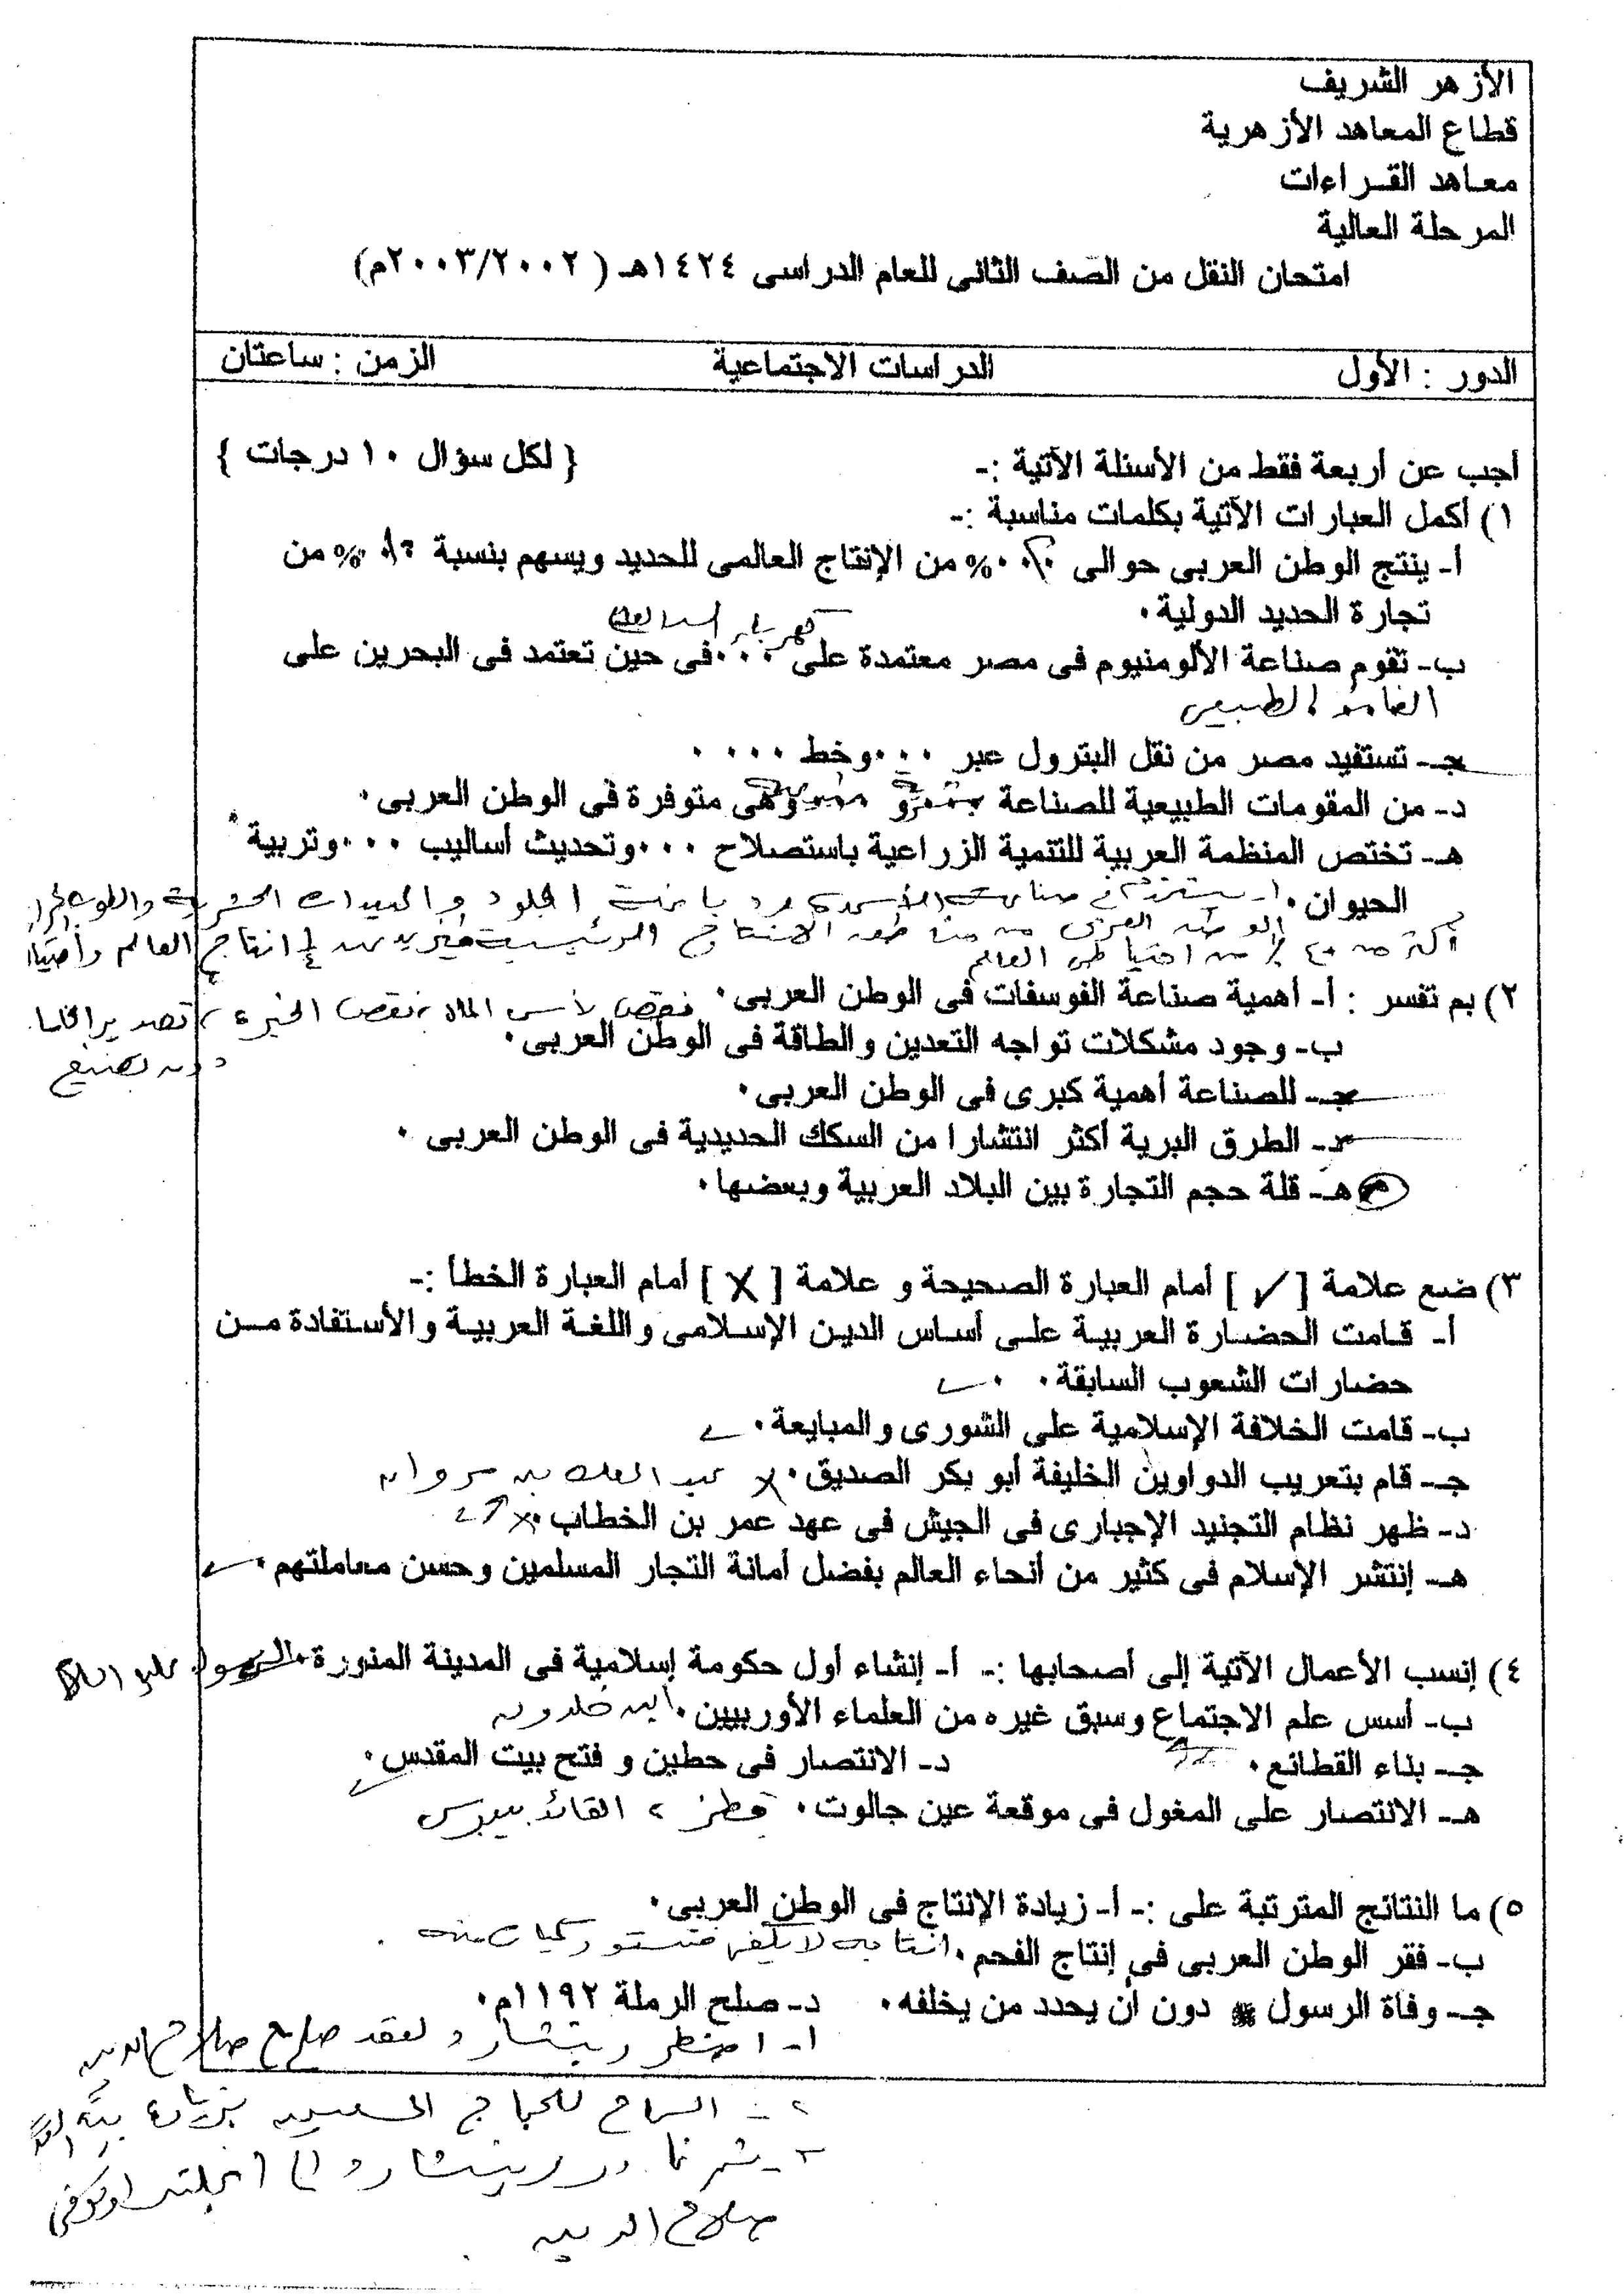 الأزهر الشريف
قطاع المعاهد الأزهرية
معاهد القراءات
المرحلة العالية
امتحان النقل من الصف الثانى للعام الدراسى ١٤٢٤هـ ( ٢٠٠٣/٢٠٠٢م)
الدور : الأول الدراسات الاجتماعية الزمن : ساعتان
أجب عن أربعة فقط من الأسئلة الآتية :- { لكل سؤال ١٠ درجات }
١) أكمل العبارات الآتية بكلمات مناسبة :-
أ- ينتج الوطن العربى حوالى % من الإنتاج العالمى للحديد ويسهم بنسبة % من
تجارة الحديد الدولية.
كهرباء السد العالى
ب- تقوم صناعة الألومنيوم فى مصر معتمدة على ... فى حين تعتمد فى البحرين على
الغاز الطبيعى
جـ- تستفيد مصر من نقل البترول عبر ... وخط ....
د- من المقومات الطبيعية للصناعة ... و ... وهى متوفرة فى الوطن العربى.
هـ- تختص المنظمة العربية للتنمية الزراعية باستصلاح ... وتحديث أساليب ... وتربية
الحيوان. ودباغة الجلود والمبيدات الحشرية
الوطن العربى من مناطق الانتاج الرئيسية انتاج العالم
أكثر من ٤٠ % من احتياطى العالم
٢) بم تفسر : أ- أهمية صناعة الفوسفات فى الوطن العربى. نقص رأس المال، نقص الخبرة،
ب- وجود مشكلات تواجه التعدين والطاقة فى الوطن العربى.
دون تصنيع
جـ- للصناعة أهمية كبرى فى الوطن العربى.
د- الطرق البرية أكثر انتشارا من السكك الحديدية فى الوطن العربى .
هـ- قلة حجم التجارة بين البلاد العربية وبعضها.
٣) ضع علامة [ ✓ ] أمام العبارة الصحيحة و علامة [ X ] أمام العبارة الخطأ :-
أ- قامت الحضارة العربية على أساس الدين الإسلامى واللغة العربية والأستفادة من
حضارات الشعوب السابقة.
ب- قامت الخلافة الإسلامية على الشورى والمبايعة.
جـ- قام بتعريب الدواوين الخليفة أبو بكر الصديق. X عبد الملك بن مروان
د- ظهر نظام التجنيد الإجبارى فى الجيش فى عهد عمر بن الخطاب. X
هـ- إنتشر الإسلام فى كثير من أنحاء العالم بفضل أمانة التجار المسلمين وحسن معاملتهم.
٤) إنسب الأعمال الآتية إلى أصحابها :- أ- إنشاء أول حكومة إسلامية فى المدينة المنورة. الرسول
ب- أسس علم الاجتماع وسبق غيره من العلماء الأوربيين. ابن خلدون
جـ- بناء القطائع. د- الانتصار فى حطين و فتح بيت المقدس.
هـ- الانتصار على المغول فى موقعة عين جالوت. قطز، القائد بيبرس
٥) ما النتائج المترتبة على :- أ- زيادة الإنتاج فى الوطن العربى.
ب- فقر الوطن العربى فى إنتاج الفحم. انتاجه لا يكفى فتستورد كميات منه
جـ- وفاة الرسول ﷺ دون أن يحدد من يخلفه. د- صلح الرملة ١١٩٢م.
١- اضطر ريتشارد لعقد صلح صلاح الدين
٢- السماح للحجاج المسيحين بزيارة بيت
٣- ريتشارد الى انجلترا وتوفى
صلاح الدين